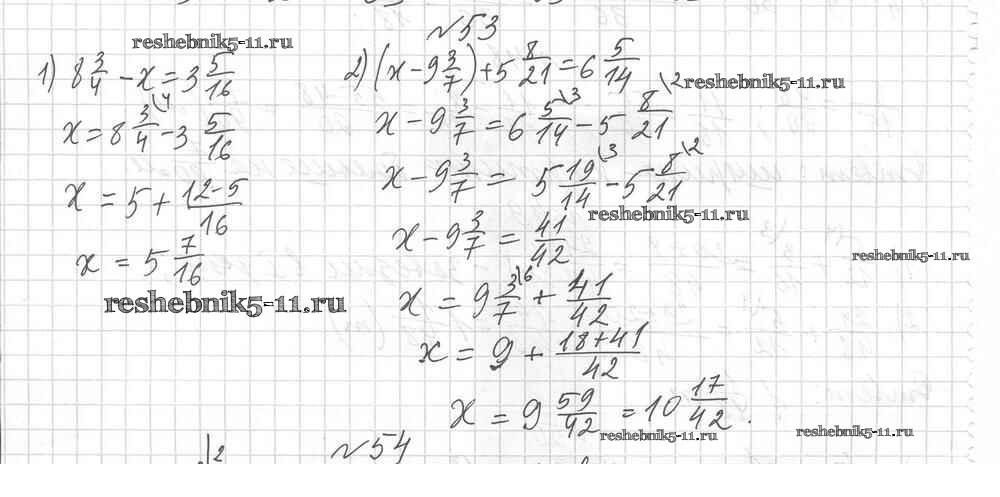 №53
reshebnik5-11.ru
1) 8 3/4 - x = 3 5/16
x = 8 3/4 \4 - 3 5/16
x = 5 + 12-5/16
x = 5 7/16
reshebnik5-11.ru
2) (x - 9 3/7) + 5 8/21 = 6 5/14
reshebnik5-11.ru
x - 9 3/7 = 6 5/14 \3 - 5 8/21 \2
x - 9 3/7 = 5 19/14 \3 - 5 8/21 \2
reshebnik5-11.ru
x - 9 3/7 = 41/42
reshebnik5-11.ru
x = 9 3/7 \6 + 41/42
x = 9 + 18+41/42
x = 9 59/42 = 10 17/42.
reshebnik5-11.ru
reshebnik5-11.ru
№54